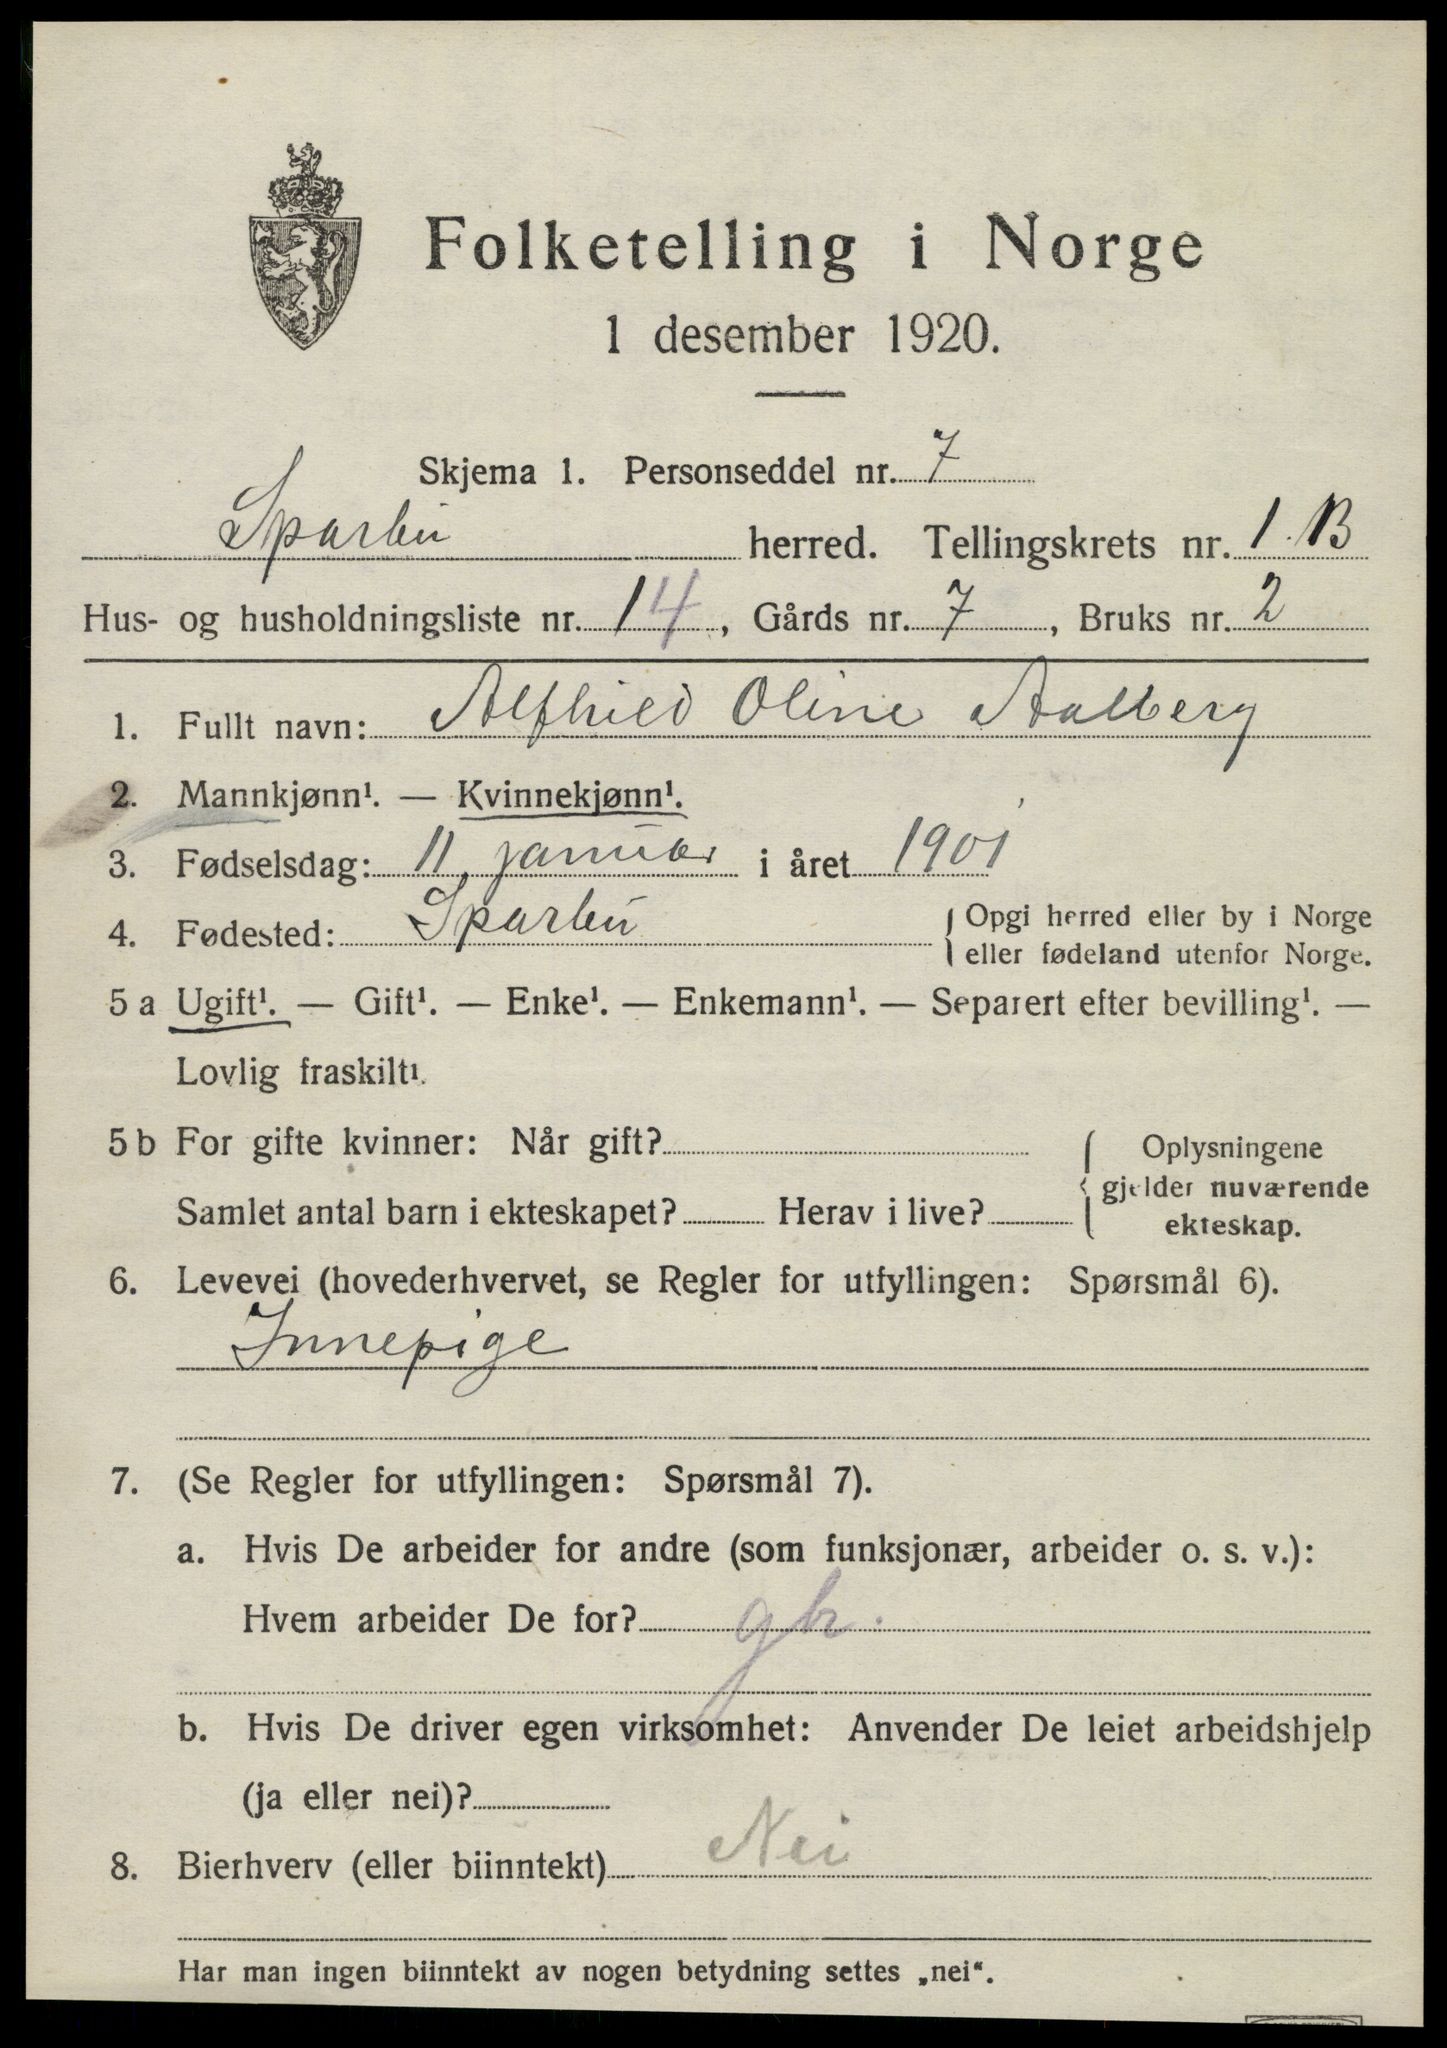 Folketelling i Norge
1 desember 1920.
Skjema 1. Personseddel nr. 7
Sparbu herred. Tellingskrets nr. 1. B
Hus- og husholdningsliste nr. 14, Gårds nr. 7, Bruks nr. 2
1. Fullt navn: Alfhild Oline Aalberg
2. Mannkjønn¹. — Kvinnekjønn¹.
3. Fødselsdag: 11 januar i året 1901
4. Fødested: Sparbu {Opgi herred eller by i Norge
eller fødeland utenfor Norge.
5 a Ugift¹. — Gift¹. — Enke¹. — Enkemann¹. — Separert efter bevilling¹. —
Lovlig fraskilt¹.
5 b For gifte kvinner: Når gift?
Samlet antal barn i ekteskapet? Herav i live?
{ Oplysningene
gjelder nuværende
ekteskap.
6. Levevei (hovederhvervet, se Regler for utfyllingen: Spørsmål 6).
Innepige
7. (Se Regler for utfyllingen: Spørsmål 7).
a. Hvis De arbeider for andre (som funksjonær, arbeider o. s. v.):
Hvem arbeider De for? gbr.
b. Hvis De driver egen virksomhet: Anvender De leiet arbeidshjelp
(ja eller nei)?
8. Bierhverv (eller biinntekt) Nei
Har man ingen biinntekt av nogen betydning settes „nei“.